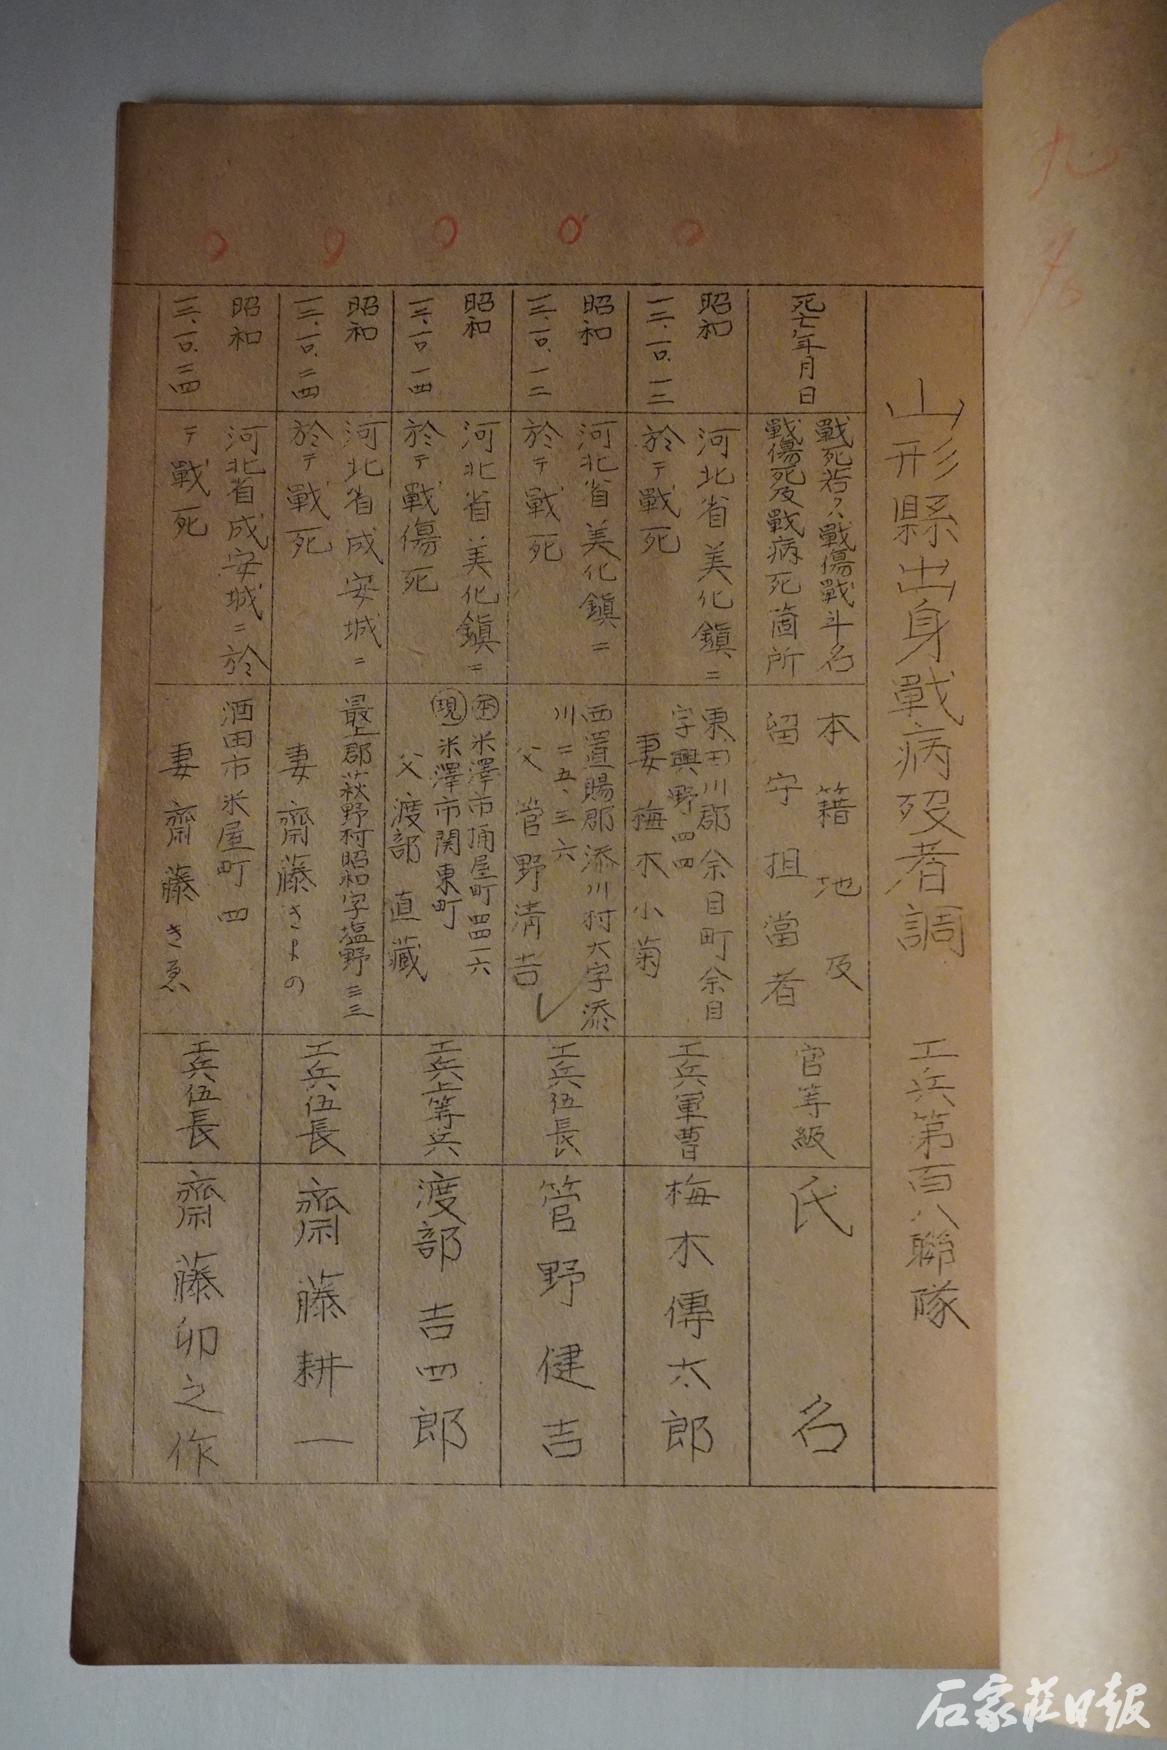 九名
山形縣出身戰病歿者調 工兵第百八聯隊
死亡年月日
戰死若クハ戰傷戰斗名
戰傷死及戰病死箇所
本籍地及
留守担當者
官等級
氏名
昭和
一三、一〇、一二
河北省美化鎮ニ
於テ戰死
東田川郡余目町余目
字興野四四
妻 梅木小菊
工兵軍曹
梅木傳太郎
昭和
一三、一〇、一二
河北省美化鎮ニ
於テ戰死
西置賜郡添川村大字添
川二五、三六
父 管野清吉
工兵伍長
管野健吉
昭和
一三、一〇、一四
河北省美化鎮ニ
於テ戰傷死
本米澤市桶屋町四四一六
現米澤市関東町
父 渡部直藏
工兵上等兵
渡部吉四郎
昭和
一三、一〇、二四
河北省成安城ニ
於テ戰死
最上郡萩野村昭和字塩野三三
妻 齋藤きよの
工兵伍長
齋藤耕一
昭和
一三、一〇、二四
河北省成安城ニ於
テ戰死
酒田市米屋町四
妻 齋藤きゑ
工兵伍長
齋藤卯之作
石家莊日報